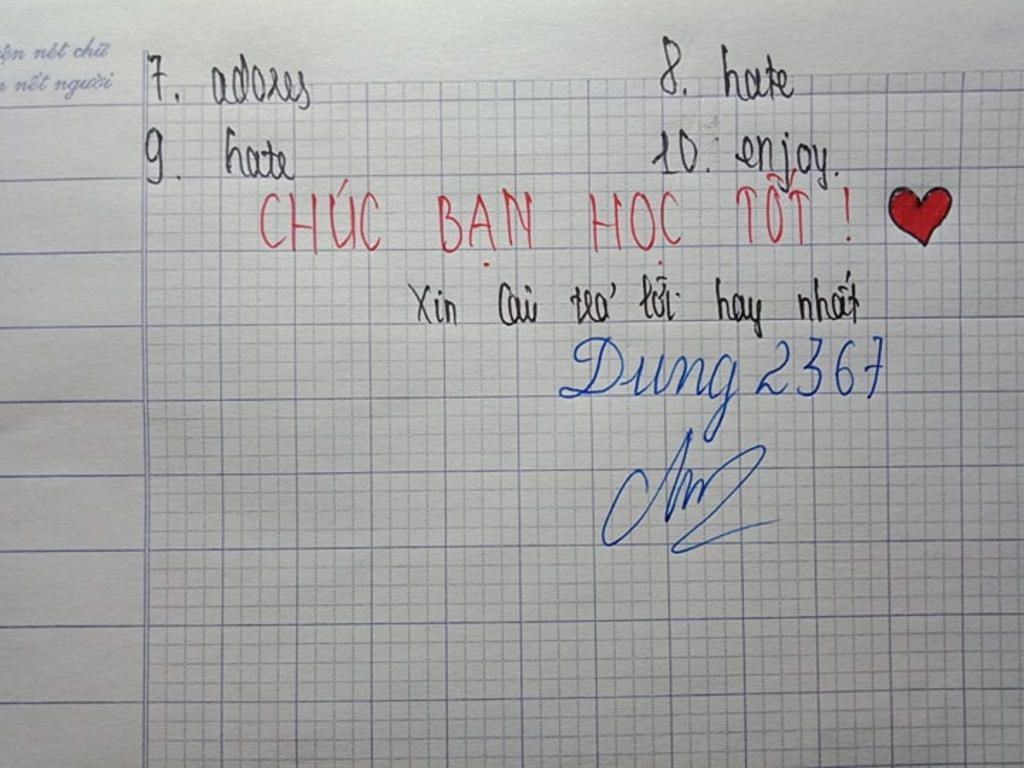 ện nét chữ
n nết người
7. adores 8. hate
9. hate 10. enjoy.
CHÚC BẠN HỌC TỐT!
Xin câu trả lời hay nhất
Dung 2367